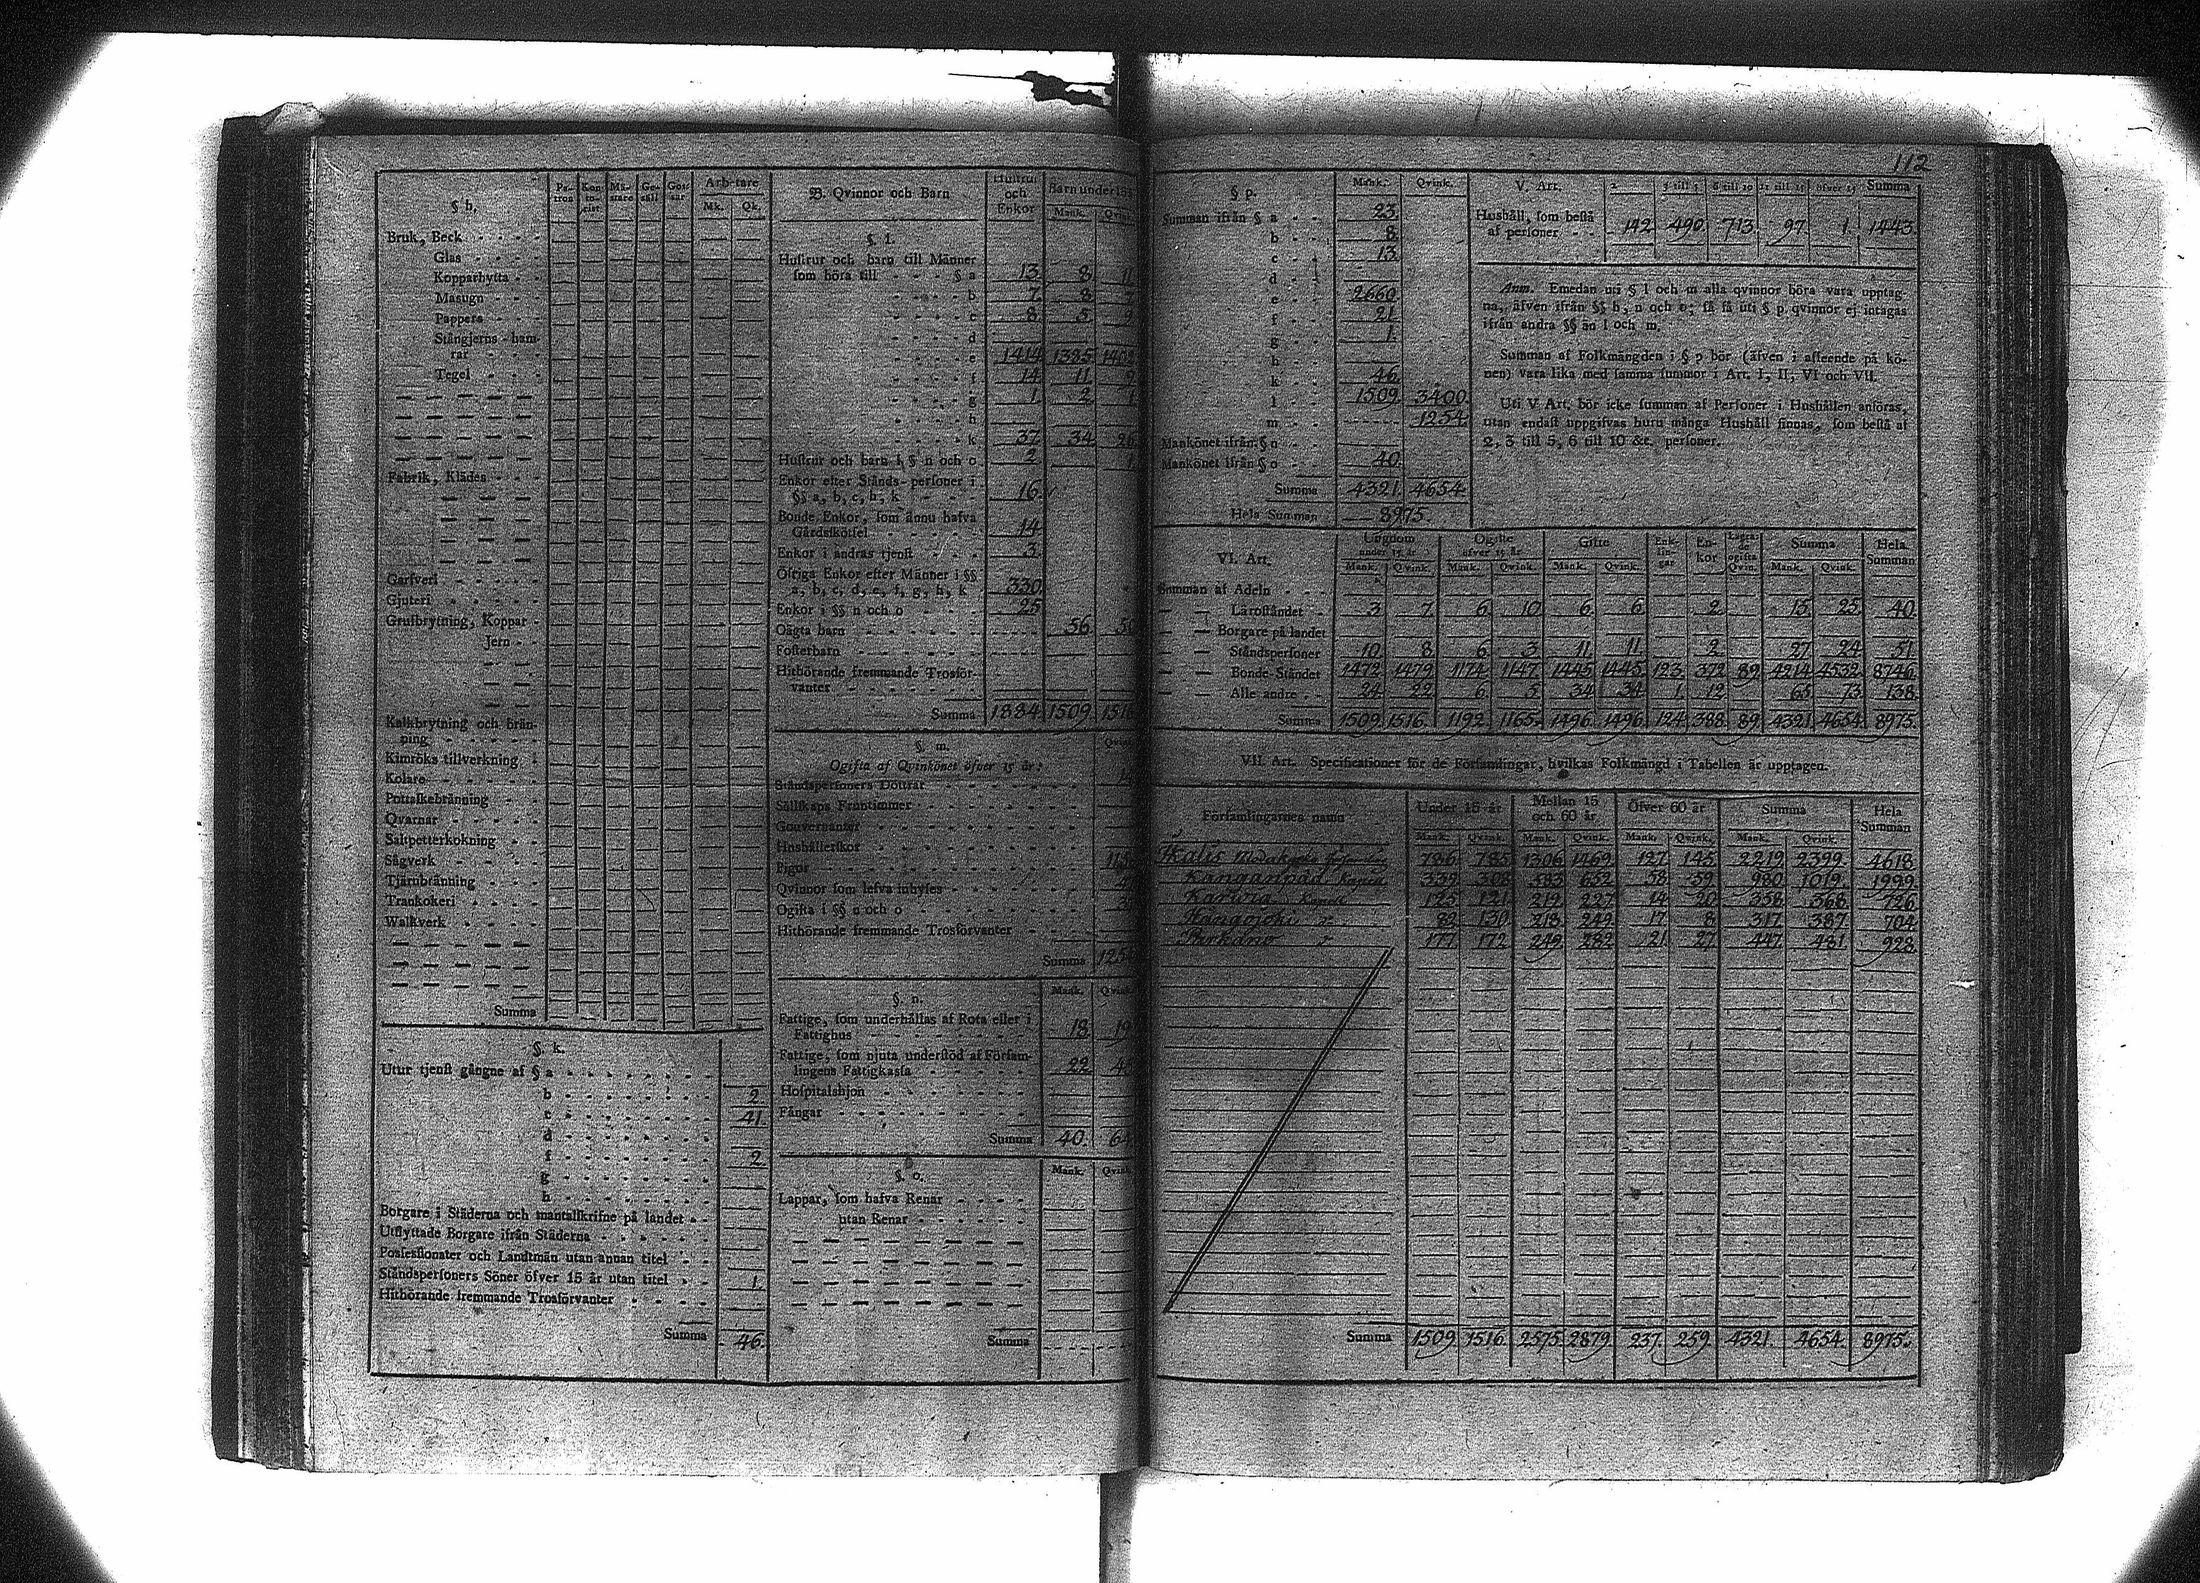 112
§ h.
Pa-tron Kon-to-rist Mä-stare Ge-säll Gos-sar Arbetare
Mk. Qk.
Bruk, Beck
Glas
Kopparhytta
Masugn
Pappers
Stångjerns-ham-
rar
Tegel
Fabrik, Klädes
Garfveri
Gjuteri
Grufbrytning, Koppar
Jern
Kalkbrytning och brän-
ning
Kimröks tillverkning
Kolare
Pottaskebränning
Qvarnar
Saltpetterkokning
Sågverk
Tjärubränning
Trankokeri
Walkverk
Summa
§. k.
Utur tjenst gångne af § a
b 2.
c 41.
d
f 2.
g
h
Borgare i Städerna och mantalskrifne på landet
Utflyttade Borgare ifrån Städerna
Possessionater och Landtmän utan annan titel
Ståndspersoners Söner öfver 15 år utan titel 1.
Hithörande fremmande Trosförvanter
Summa 46.
B. Qvinnor och Barn
Hustrur och Enkor Barn under 15
Mank.
§. l.
Hustrur och barn till Männer
som höra till § a 13. 8
b 7. 8
c 8. 5
d
e 1414 1385
f 14. 11
g 1. 2
h
k 37. 34 26
Hustrur och barn i § n och o 2
Enkor efter Stånds-personer i
§§ a, b, c, h, k 16.
Bonde-Enkor, som ännu hafva
Gårdsskötsel 14.
Enkor i andras tjenst 3.
Öfriga Enkor efter Männer i §§
a, b, c, d, e, f, g, h, k 330.
Enkor i §§ n och o 25
Oägta barn 56.
Fosterbarn
Hithörande fremmande Trosför-
vanter
Summa 1884. 1509. 1516
§. m.
Ogifta af Qvinkönet öfver 15 år:
Ståndspersoners Döttrar
Sällskaps Fruntimmer
Gouvernanter
Hushållerskor
Pigor
Qvinnor som lefva inhyses
Ogifta i §§ n och o
Hithörande fremmande Trosförvanter
Summa 125
§. n.
Mank.
Fattige, som underhållas af Rota eller i
Fattighus 18 19
Fattige, som njuta understöd af Försam-
lingens Fattigkassa 22
Hospitalshjon
Fångar
Summa 40. 64
§. o.
Mank. Qvink.
Lappar, som hafva Renar
utan Renar
Summa
§ p.
Mank. Qvink.
Summan ifrån § a 23.
b 8.
c 13.
d
e 2660.
f 21.
g 1.
h
k 46.
l 1509. 3400.
m 1254.
Mankönet ifrån § n
Mankönet ifrån § o 40.
Summa 4321. 4654.
Hela Summan 8975.
V. Art.
2 3 till 5 6 till 10 11 till 15 öfver 15 Summa
Hushåll, som bestå
af personer 142. 490. 713. 97. 1. 1443.
Anm. Emedan uti § l och m alla qvinnor böra vara upptag-
na, äfven ifrån §§ h, n och o; så få uti § p qvinnor ej intagas
ifrån andra §§ än l och m.
Summan af Folkmängden i § p bör (äfven i afseende på kö-
nen) vara lika med samma summor i Art. I, II, VI och VII.
Uti V Art. bör icke summan af Personer i Hushållen anföras,
utan endast uppgifvas huru många Hushåll finnas, som bestå af
2, 3 till 5, 6 till 10 &c. personer.
VI. Art.
Ungdom under 15 år Ogifte öfver 15 år Gifte Enk-lin-gar En-kor Lägra-de ogifta Qvin. Summa Hela Summan
Mank. Qvink. Mank. Qvink. Mank. Qvink. Mank. Qvink.
Summan af Adeln
Läroståndet 3. 7. 6. 10. 6. 6. 2. 15. 25. 40.
Borgare på landet
Ståndspersoner 10. 8. 6. 3. 11. 11. 2. 27. 24. 51.
Bonde-Ståndet 1472. 1479. 1174. 1147. 1445. 1445. 123. 372. 89. 4214. 4532. 8746.
Alle andre 24. 22. 6. 5. 34. 34. 1. 12. 65. 73. 138.
Summa 1509. 1516. 1192. 1165. 1496. 1496. 124. 388. 89. 4321. 4654. 8975.
VII. Art. Specificationer för de Församlingar, hvilkas Folkmängd i Tabellen är upptagen.
Församlingarnes namn Under 15 år Mellan 15 och 60 år Öfver 60 år Summa Hela Summan
Mank. Qvink. Mank. Qvink. Mank. Qvink. Mank. Qvink.
Ikalis Moderkyrko Församling 786. 785. 1306. 1469. 127. 145. 2219. 2399. 4618.
Kanganpää Kapell 339. 308. 583. 652. 58. 59. 980. 1019. 1999.
Karwia Kapell 125. 121. 219. 227. 14. 20. 358. 368. 726.
82. 130. 218. 249. 17. 8. 317. 387. 704.
Parkano 177. 172. 249. 282. 21. 27. 447. 481. 928.
Summa 1509. 1516. 2575. 2879. 237. 259. 4321. 4654. 8975.